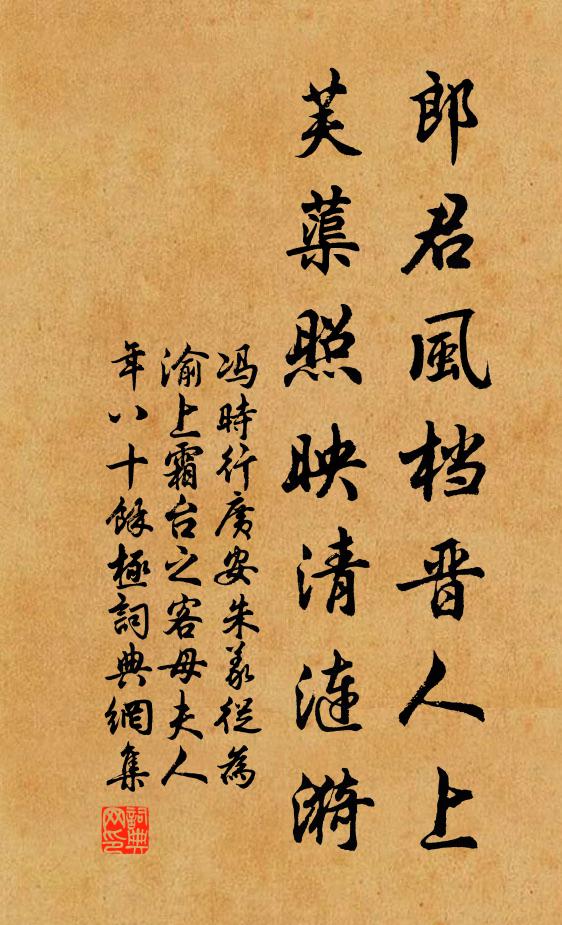 郎君風档晋人上
芙蕖照映清漣漪
冯時行廣安朱義從為
渝上霜台之客母夫人
年八十餘極詞典網集
詞典网印